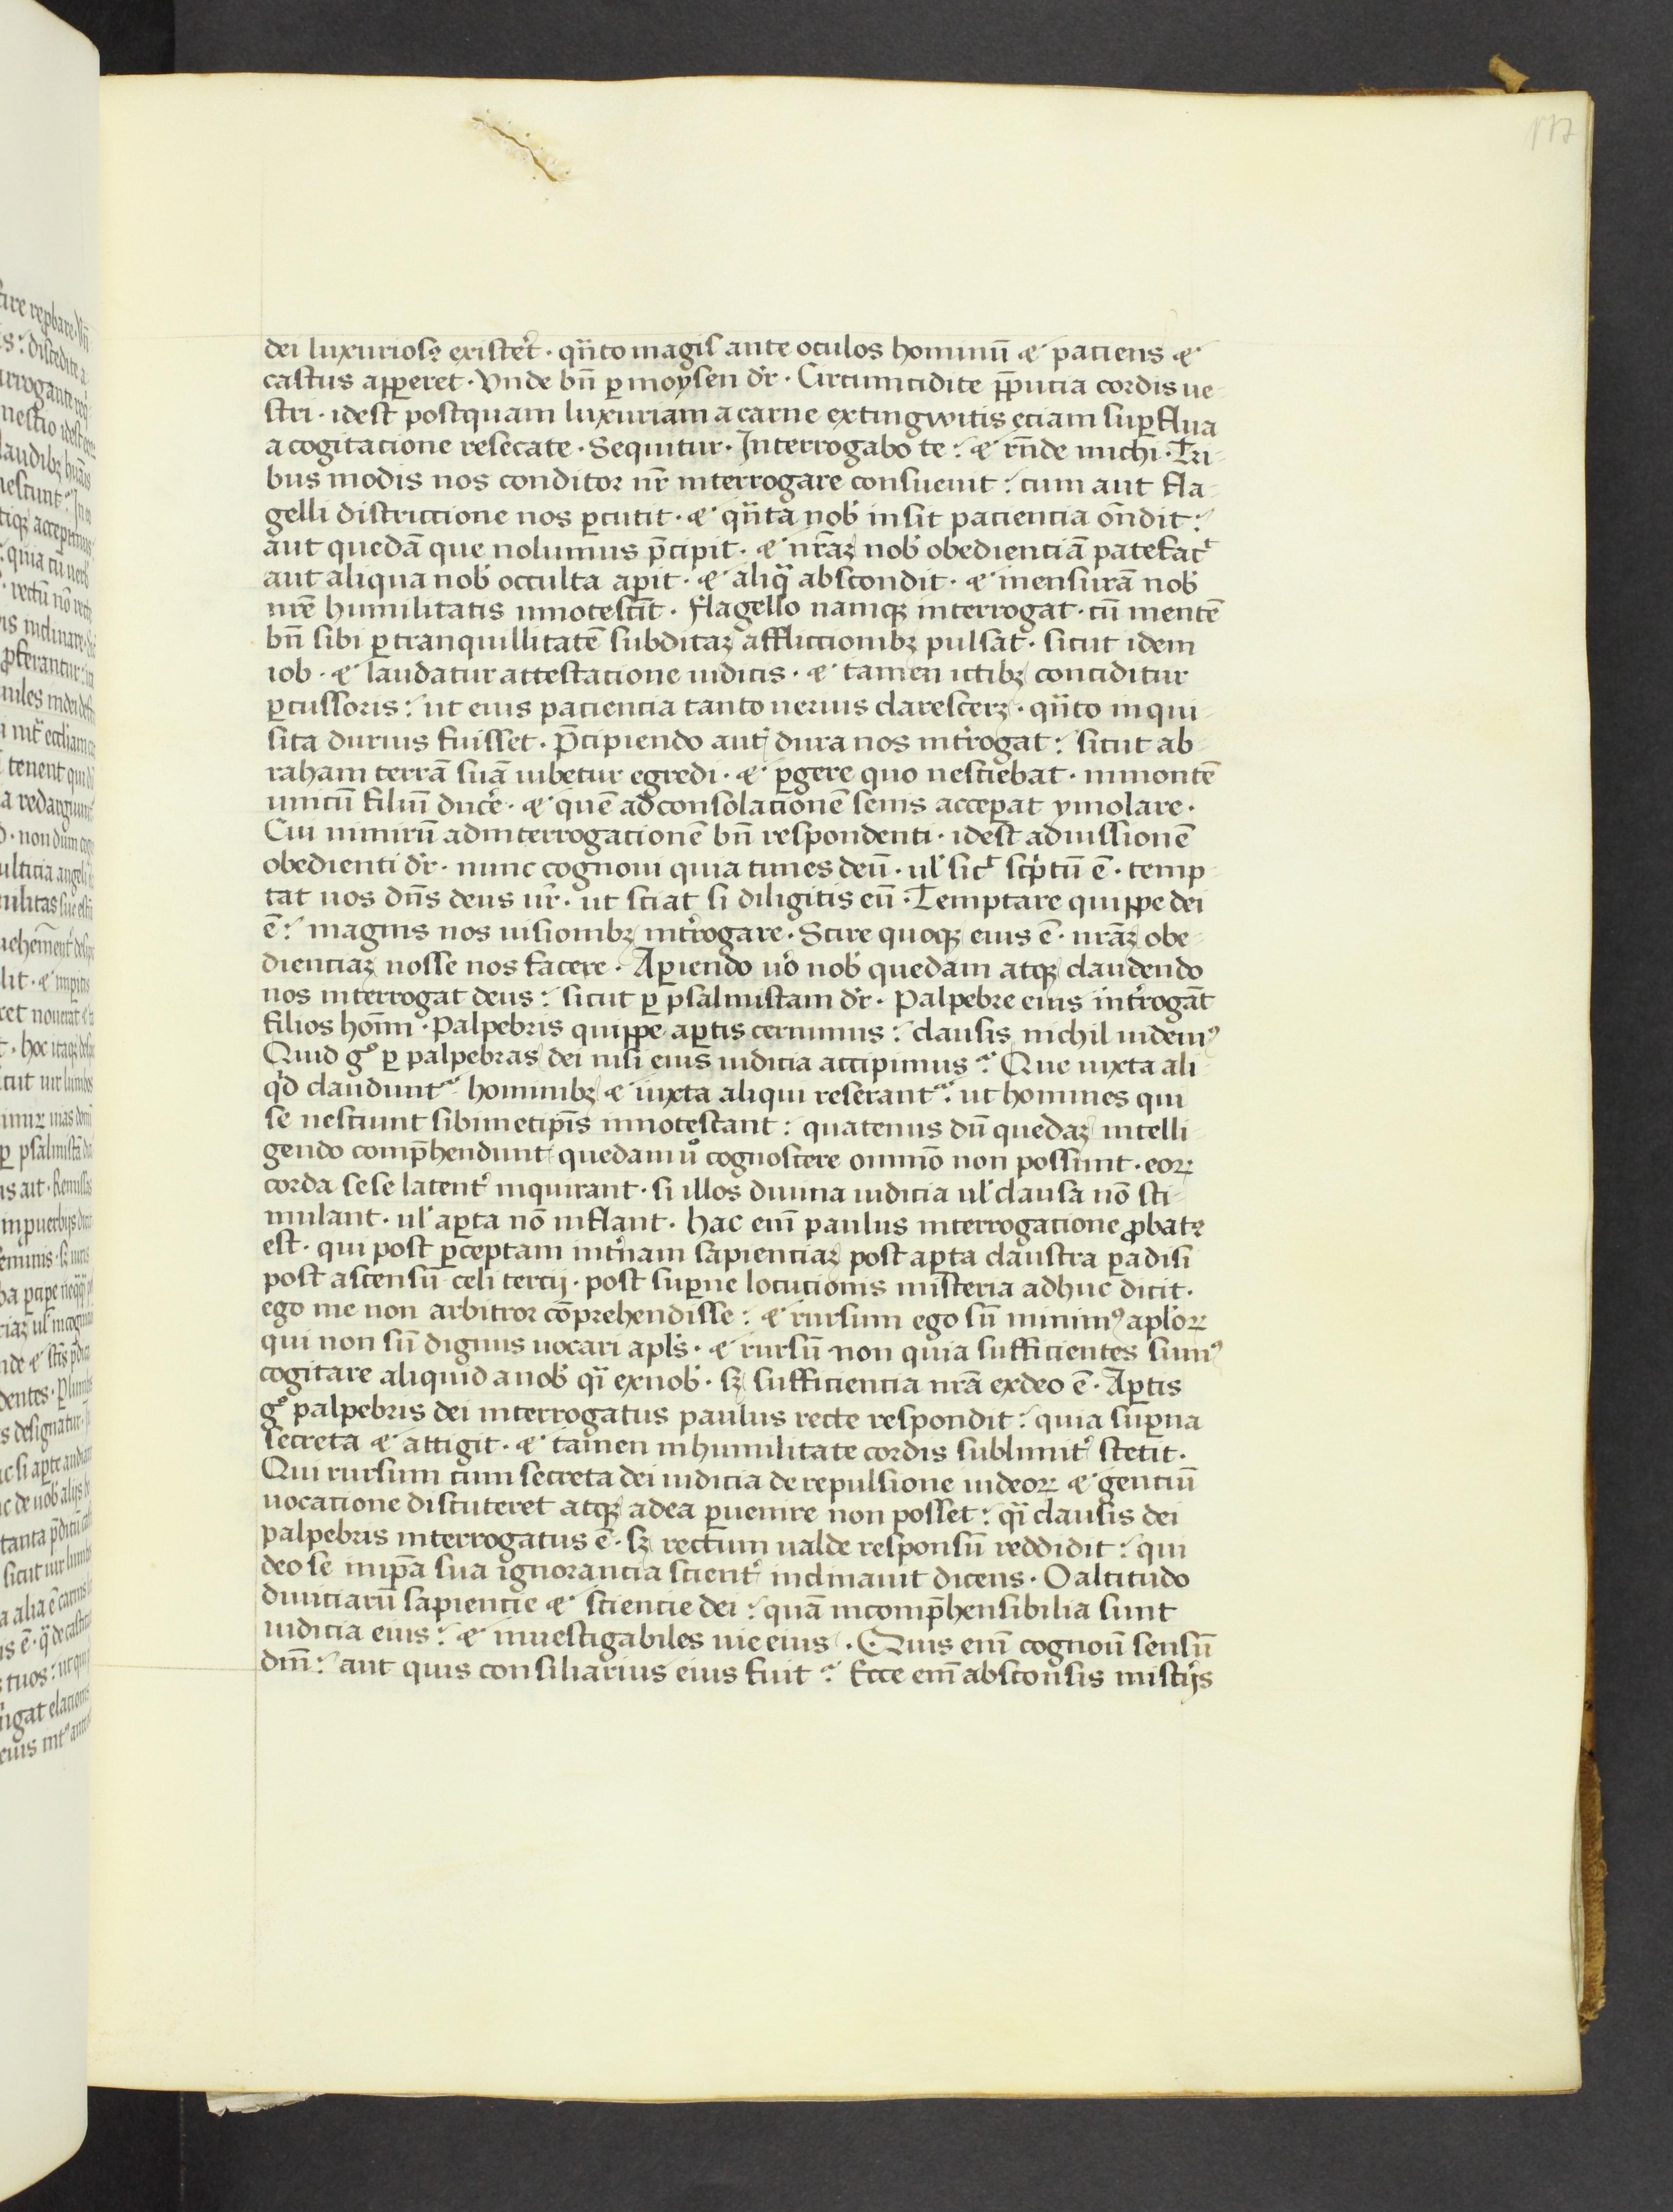 117
dei luxuriosꝛ existeꝛ̃t · qn̄to magis ante oculos hominū & paciens &
castus apꝑeret · Vnde bn̄ ꝑ moysen dr̄ · Circumcidite p̄pucia cordis ue-
stri · idest postquam luxuriam a carne extingwitis eciam suꝑflua
a cogitacione resecate · Sequitur · Interrogabo te : & rn̄de michi · Tri-
bus modis nos conditor nr̄ interrogare consueuit : cum aut fla-
gelli districcione nos ꝑcutit · & qn̄ta nob̄ insit paciencia on̄dit :
aut quedā que nolumus p̄cipit · & nr̄aꝫ nob̄ obedienciā patefac̄
aut aliqua nob̄ occulta aꝑit · & aliqͣ abscondit · & mensurā nob̄
nr̄e humilitatis innotescit · flagello namqꝫ interrogat · cū mentē
bn̄ sibi ꝑ tranquillitatē subditaꝫ affliccionibꝫ pulsat · sicut idem
iob · & laudatur attestacione iudicis · & tamen ictibꝫ conciditur
ꝑcussoris : ut eius paciencia tanto uerius claresceꝫ · qn̄to inqui-
sita durius fuisset · P̄cipiendo aut̄ dura nos int̄rogat : sicut ab-
raham terrā suā iubetur egredi · & ꝑgere quo nesciebat · in montē
unicū filiū ducē · & quē ad consolacionē senis acceꝑat ymolare ·
Cui nimirū ad interrogacionē bn̄ respondenti · idest ad iussionē
obedienti dr̄ · nunc cognoui quia times deū · ul̄ sic̄ scͥptū ē · temp-
tat uos dn̄s deus ur̄ · ut sciat si diligitis eū · Temptare quippe dei
ē : magnis nos iusionibꝫ int̄rogare · Scire quoqꝫ eius ē · nr̄aꝫ obe-
dienciaꝫ nosse nos facere · Aꝑiendo uͦ nob̄ quedam atqꝫ claudendo
nos interrogat deus : sicut ꝑ psalmistam dr̄ · Palpebre eius int̄rogāt
filios hoīm · Palpebris quippe aꝑtis cernimus : clausis nichil uidemꝰ
Quid gͦ ꝑ palpebras dei nisi eius iudicia accipimus ? Que iuxta ali-
qͥd claudunt᷑ hominibꝫ & iuxta aliqui reserant᷑ : ut homines qui
se nesciunt sibimetip̄is innotescant : quatenus dū quedaꝫ intelli-
gendo comp̄hendunt quedam uͦ cognoscere omnīo non possunt · eoꝝ
corda sese latent̄ inquirant · si illos diuina iudicia ul̄ clausa nō sti-
mulant · ul̄ aꝑta nō inflant · hac enī paulus interrogacione ꝓbatꝛ
est · qui post ꝑceptam int̄nam sapienciaꝫ post aꝑta claustra ꝑadisi
post ascensū celi tercij · post suꝑne locucionis misteria adhuc dicit ·
ego me non arbitror cōprehendisse : & rursum ego sū minimꝰ apl̄oꝝ
qui non sū dignus uocari apl̄s · & rursū non quia sufficientes sumꝰ
cogitare aliquid a nob̄ qͣi ex nob̄ · sꝫ sufficiencia nr̄a ex deo ē · Aꝑtis
gͦ palpebris dei interrogatus paulus recte respondit : quia suꝑna
secreta & attigit · & tamen in humilitate cordis sublimit̄ stetit ·
Qui rursum cum secreta dei iudicia de repulsione iudeoꝝ & genciū
uocacione discuteret atqꝫ ad ea ꝑuenire non posset : qͣi clausis dei
palpebris interrogatus ē · sꝫ rectum ualde responsū reddidit : qui
deo se in ip̄a sua ignorancia scient̄ inclinauit dicens · O altitudo
diuiciarū sapiencie & sciencie dei : quā incomp̄hensibilia sunt
iudicia eius : & inuestigabiles uie eius · Quis enī cognouͭ sensū
dn̄i : aut quis consiliarius eius fuit ? Ecce enī absconsis mist̄ijs